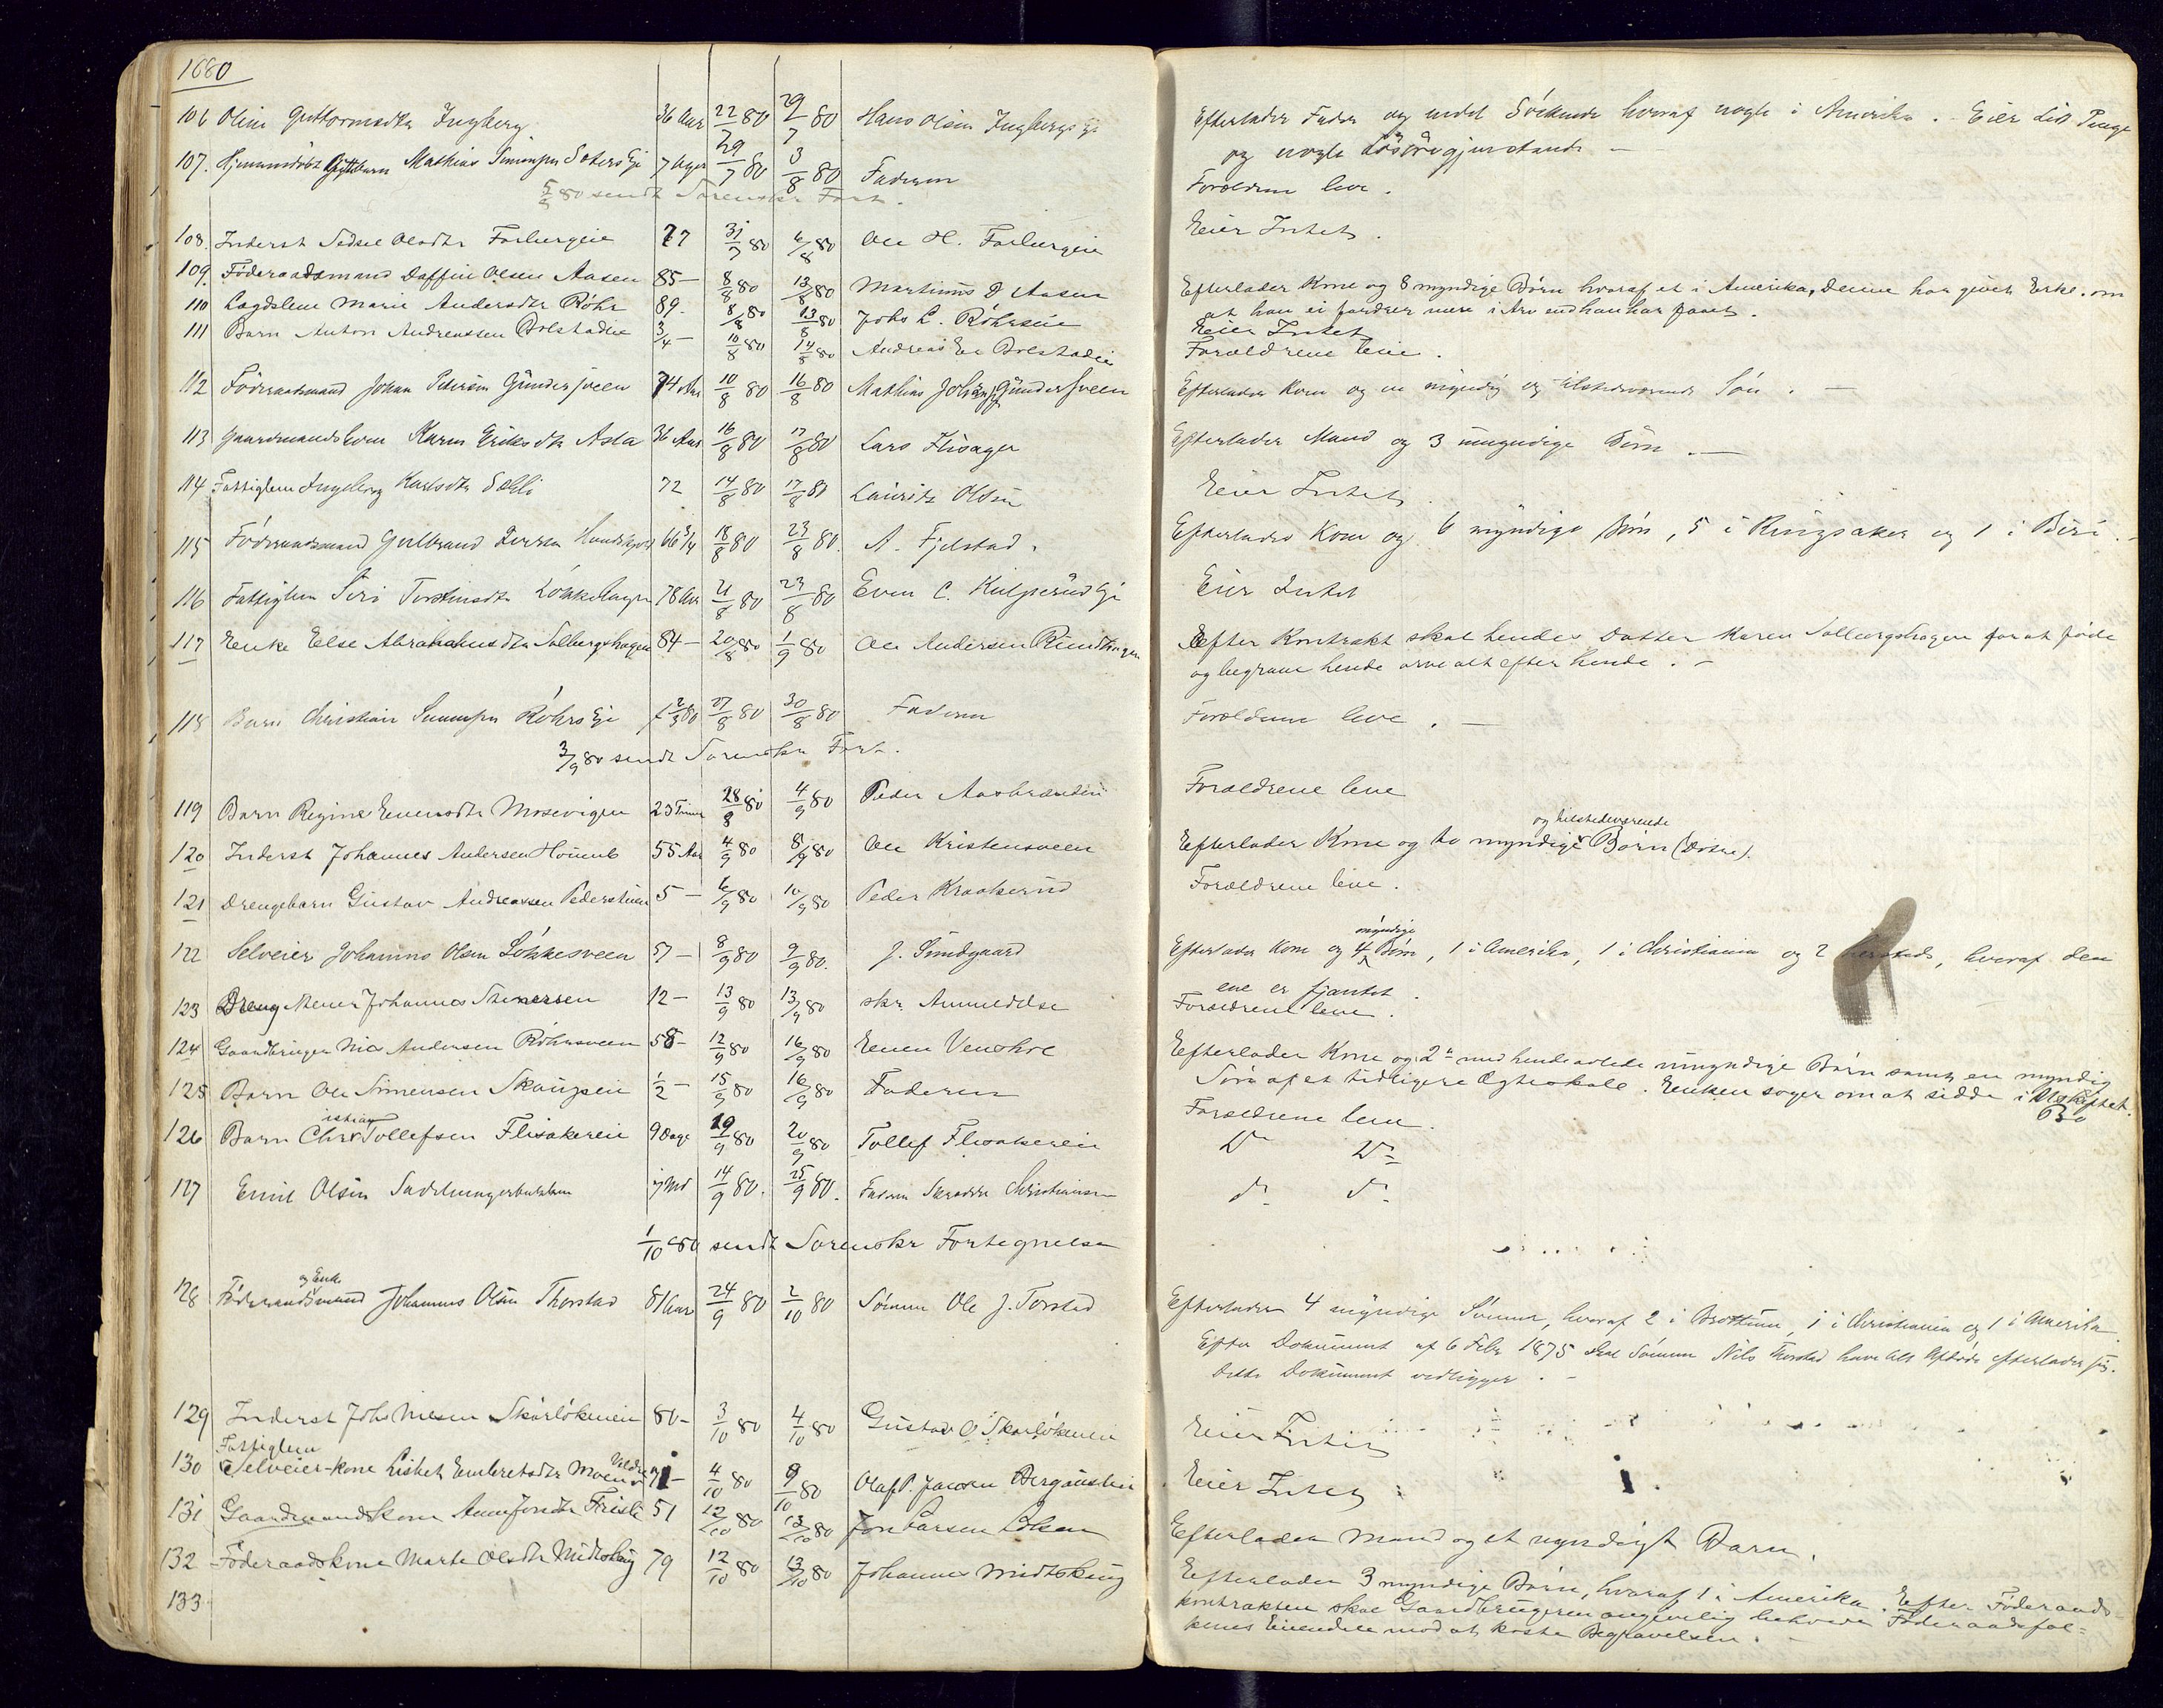 1880
106 Oline Guttormsdtr Ingberg 36 Aar 22/7 80 29/7 80 Hans Olsen Ingbergs Ei
Efterlader Fader og endel Søskende hvoraf nogle i Amerika. Eier Lidt Penge
og nogle Løsøregjenstande —
107. Hjemmedøbt Mathias Simensen Ei 7 Uger 29/7 80 3/8 80 Faderen
Forældrene leve.
5/8 80 sendt Sorenskr Fort.
108. Inderst Sidsel Olsdtr Farbergeie 77 31/7 80 6/8 80 Ole H. Farbergeie
Eier Intet.
109. Føderaadsmand Daffin Olsen Aasen 85 — 8/8 80 13/8 80 Martinus D Aasen
Efterlader Kone og 8 myndige Børn hvoraf et i Amerika, Denne har givet Erkl. om
at han ei fordrer mere i Arv end han har faaet.
110 Lægdslem Marie Andersdtr Röhr 89. 8/8 80 13/8 80 Johs L. Röhrseie
Eier Intet
111 Barn Anton Andreassen Bolstadeie 3/4 — 10/8 80 14/8 80 Andreas Bolstadeie
Forældrene leve.
112 Føderaadsmand Johan Petersen Gündersveen 74 Aar 10/8 80 16/8 80 Mathias Johansen Gündersveen
Efterlader Kone og en myndig og tilstedeværende Søn. —
113 Gaardmandskone Karen Eriksdtr Asla 36 Aar 16/8 80 17/8 80 Lars Flisager
Efterlader Mand og 3 umyndige Børn. —
114 Fattiglem Ingeborg Karlsdtr Sæhli 72 14/8 80 17/8 80 Lauritz Olsen
Eier Intet.
115 Føderaadsmand Gulbrand Iversen 66 3/4 18/8 80 23/8 80. A. Fjelstad.
Efterlader Kone og 6 myndige Børn, 5 i Ringsaker og 1 i Biri.
116 Fattiglem Siri Torstensdtr Løkkehagen 78 Aar 21/8 80 23/8 80 Even C. Kulperud Ei
Eier Intet
117 Enke Else Abrahamsdtr Solbergshagen 84 — 20/8 80 1/9 80 Ole Andersen Rundhaugen
Efter Kontrakt skal hendes Datter Karen Solbergshagen for at føde
og begrave hende arve alt efter hende. —
118 Barn Christian Röhrs Ei 27/8 80 30/8 80 Faderen
Forældrene leve. —
3/9 80 sendt Sorenskr Fort.
119 Barn Regine Evensdtr Mosevigen 23 Timer 28/8 80 4/9 80 Peder Aasbrænden
Forældrene leve
120 Inderst Johannes Andersen 55 Aar 4/9 80 8/9 80 Ole Kristensveen
og tilstedeværende
Efterlader Kone og to myndige Børn (Døtre).
121 Drengebarn Gustav Andreassen Pederstuen 5 — 6/9 80 10/9 80 Peder Kraakerud
Forældrene leve.
122 Selveier Johannes Olsen Løkkesveen 57 — 8/9 80 9/9 80. J. Sundgaard
myndige
Efterlader Kone og 4 Børn, 1 i Amerika, 1 i Christiania og 2 hersteds, hvoraf den
ene er fjantet.
123 Dreng Johannes Stenersen 12 — 13/9 80 13/9 80 skr. Anmeldelse
Forældrene leve.
124 Gaardbruger Nils Andersen Röhrsveen 58 — 12/9 80 16/9 80 Even Venskve
Efterlader Kone og 2 med hende avlede umyndige Børn samt en myndig
Søn af et tidligere Ægteskab. Enken søger om at sidde i Uskiftet
Bo
125 Barn Ole Simensen Skaugseie 1/2 — 15/9 80 16/9 80 Faderen
Forældrene leve.
126 Barn Christian Tollefsen Flisakereie 9 Dage 19/9 80 20/9 80 Tollef Flisakereie
Do Do
127 Emil Olsen 7 Md 14/9 80. 25/9 80. Christiansen
do do
1/10 80 sendt Sorenskr Fortegnelse
og Enke
128 Føderaadsmand Johannes Olsen Thorstad 81 Aar 24/9 80 2/10 80 Sønnen Ole J. Torstad
Efterlader 4 myndige Sønner, hvoraf 2 i Brøttum, 1 i Christiania og 1 i Amerika
Efter Dokument af 6 Febr 1875 skal Sønnen Nils Thorstad have Alt Afdøde efterlader sig.
Dette Dokument vedligger. —
129 Inderst Johs Nilsen Skarløkeneie 80 — 3/10 80 4/10 80 Gustav O Skarløkeneie
Eier Intet
Fattiglem
130 Selveier-kone Lisbet Embretsdtr Moen Veldre 71 — 4/10 80 9/10 80 Olaf P. Jansen Bergaustein
Eier Intet
131 Gaardmandskone Anne Jonsdtr Friisli 51 12/10 80 13/10 80 Jon Larsen
Efterlader Mand og et myndigt Barn.
132 Føderaadskone Marte Olsdtr Midtskaug 79 12/10 80 13/10 80 Johannes Midtskaug
Efterlader 3 myndige Børn, hvoraf 1 i Amerika. Efter Føderaads-
kontrakten skal Gaardbrugeren angivelig beholde Føderaadsfol=
kenes Eiendele mod at koste Begravelsen. —
133